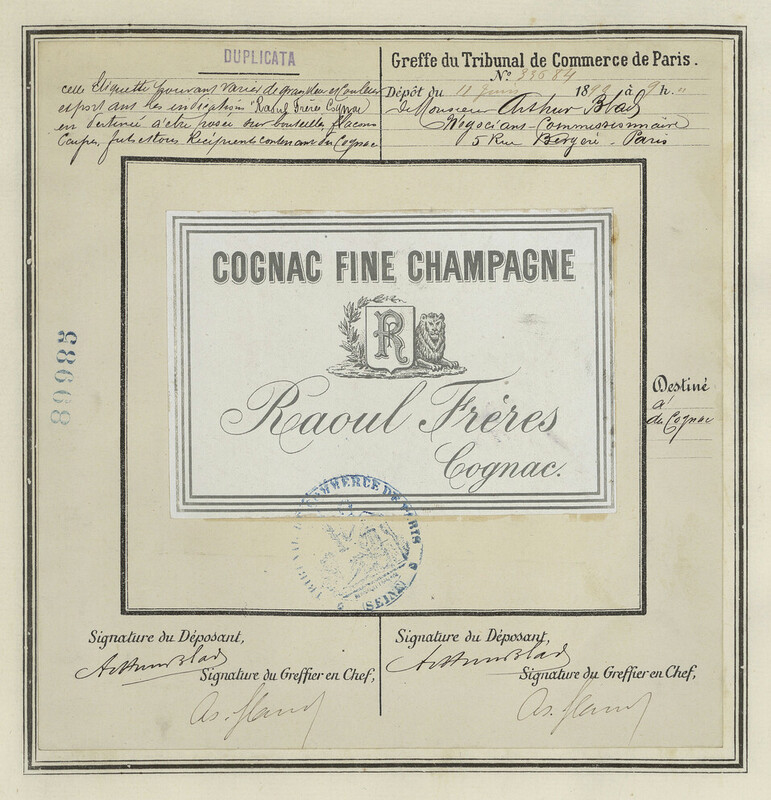 DUPLICATA
cette Etiquette pouvant varier de grandeur et couleur
et portant les indications "Raoul Frères Cognac
est destinée à être posée sur bouteilles, flacons
Caisses, futs et tous Récipients contenant du Cognac
Greffe du Tribunal de Commerce de Paris.
N.º
Dépôt du 11 Juin 18 à 9 h. "
de Monsieur Arthur Blad
Négociant-Commissionnaire
5 Rue Bergère - Paris
89985
COGNAC FINE CHAMPAGNE
R
Raoul Fréres
Cognac.
Destiné
à
du Cognac
TRIBUNAL DE COMMERCE DE PARIS
(SEINE)
Signature du Déposant,
Arthur Blad
Signature du Greffier en Chef,
Signature du Déposant,
Arthur Blad
Signature du Greffier en Chef,